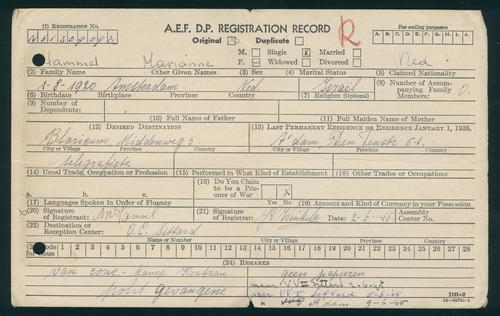 A.E.F. D.P. REGISTRATION RECORD
(1) REGISTRATION NO.
Original Duplicate R
For coding purposes
A. B. C. D. E. F. G. H. I. J.
M. Single X Married
F. Widowed Divorced
Hammel Marianne Ned.
(2) Family Name Other Given Names (3) Sex (4) Marital Status (5) Claimed Nationality
1-8-1920 Amsterdam Ned Israil
(6) Birthdate Birthplace Province Country (7) Religion (Optional) (8) Number of Accompanying Family Members: 0.
(9) Number of Dependents:
(10) Full Name of Father (11) Full Maiden Name of Mother
(12) DESIRED DESTINATION (13) LAST PERMANENT RESIDENCE OR RESIDENCE JANUARY 1, 1938.
Blaricum Middenweg 5 A'dam,
City or Village Province Country City or Village Province Country
telegrafiste
(14) Usual Trade, Occupation or Profession (15) Performed in What Kind of Establishment (16) Other Trades or Occupations
a. b. c.
(17) Languages Spoken in Order of Fluency
(18) Do You Claim to be a Prisoner of War X
(19) Amount and Kind of Currency in your Possession
(20) Signature of Registrant: (21) Signature of Registrar: Date: 2-6-45 Assembly Center No.
(22) Destination or Reception Center: O.C. Sittard
Name or Number City or Village Province Country
(23) Code for Issue 1 2 3 4 5 6 7 8 9 10 11 12 13 14 15 16 17 18 19 20 21 22 23 24 25 26 27 28
(24) REMARKS
van conc. Kamp geen papieren
polit gevangene
naar Sittard 2-6-45
naar Sittard 5-6-45
A'dam 9-6-45
DP-2